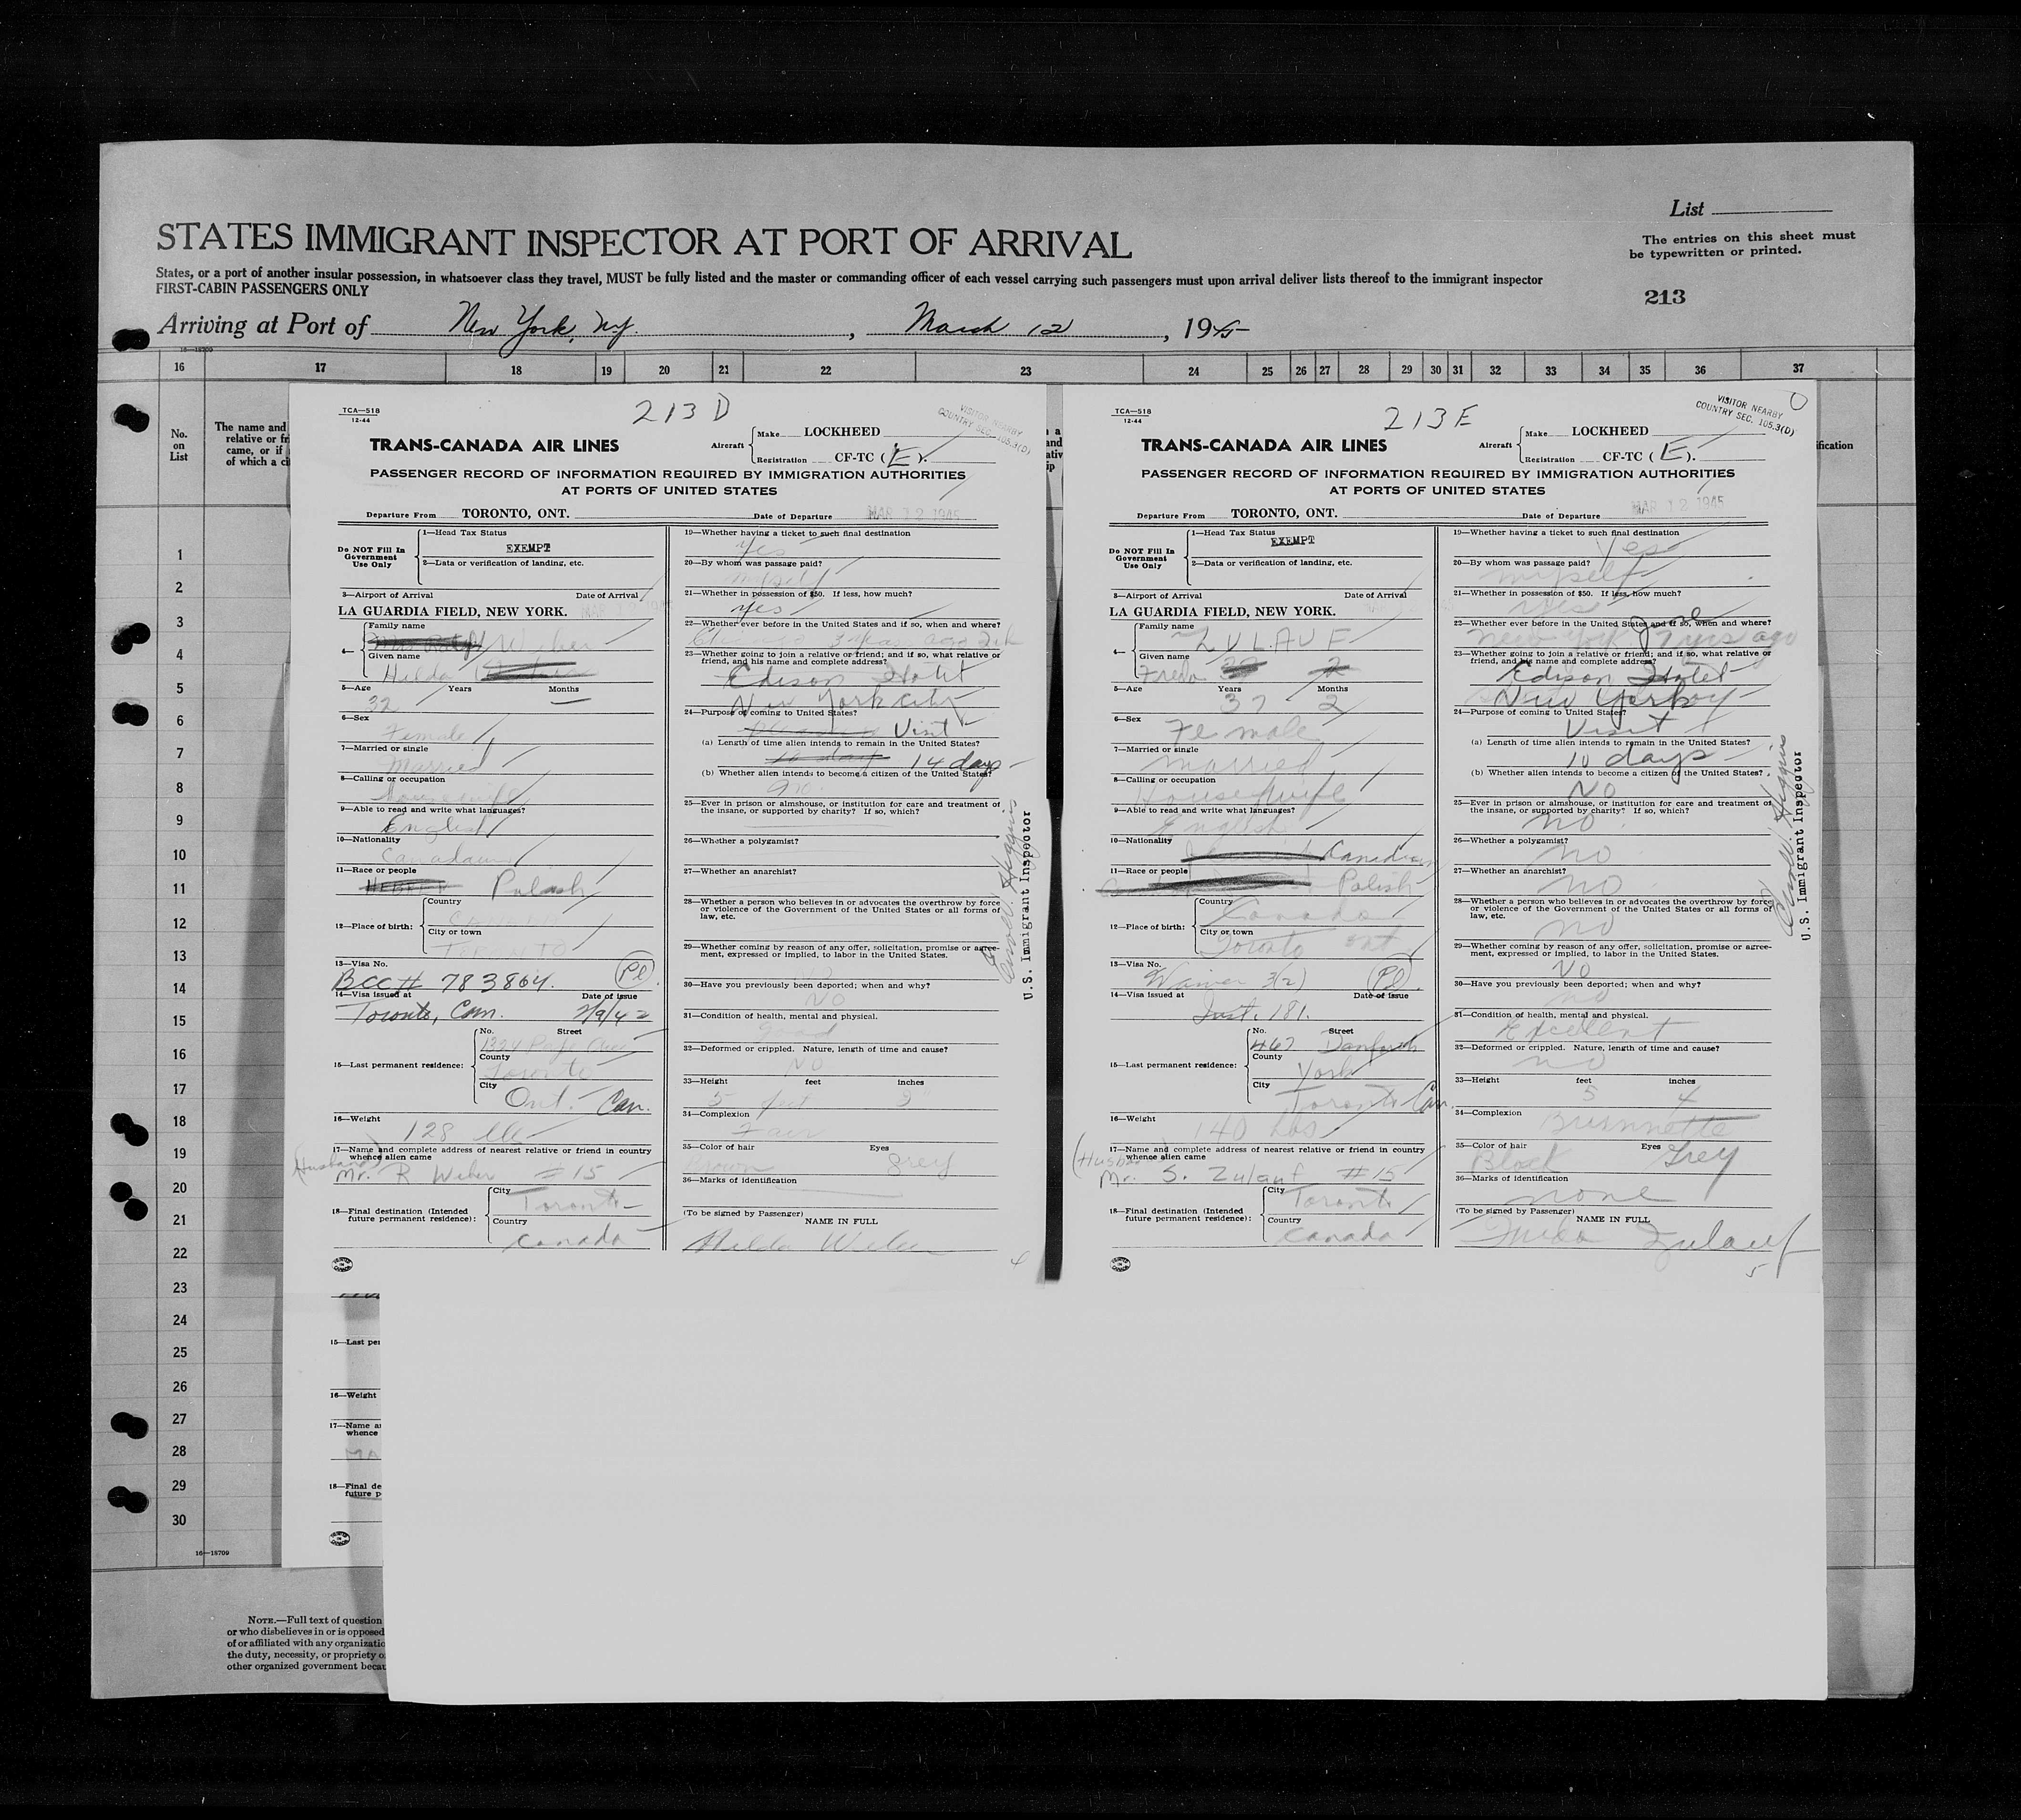 List
STATES IMMIGRANT INSPECTOR AT PORT OF ARRIVAL
The entries on this sheet must
be typewritten or printed.
States, or a port of another insular possession, in whatsoever class they travel, MUST be fully listed and the master or commanding officer of each vessel carrying such passengers must upon arrival deliver lists thereof to the immigrant inspector
FIRST-CABIN PASSENGERS ONLY
213
Arriving at Port of New York, N.Y., March 12, 1945
16—18709
16 17 18 19 20 21 22 23 24 25 26 27 28 29 30 31 32 33 34 35 36 37
No.
on
List
The name and
relative or fr
came, or if
of which a ci
1
2
3
4
5
6
7
8
9
10
11
12
13
14
15
16
17
18
19
20
21
22
23
24
25
26
27
28
29
30
16—18709
TCA—518
12-44
213 D
VISITOR NEARBY
COUNTRY SEC. 105.3(D)
TRANS-CANADA AIR LINES
Aircraft
Make LOCKHEED
Registration CF-TC (E).
PASSENGER RECORD OF INFORMATION REQUIRED BY IMMIGRATION AUTHORITIES
AT PORTS OF UNITED STATES
Departure From TORONTO, ONT. Date of Departure MAR 12 1945
Do NOT Fill In
Government
Use Only
1—Head Tax Status
EXEMPT
2—Data or verification of landing, etc.
3—Airport of Arrival Date of Arrival
LA GUARDIA FIELD, NEW YORK.
4—
Family name
Weber
Given name
Hilda
5—Age Years Months
32 —
6—Sex
Female
7—Married or single
Married
8—Calling or occupation
Housewife
9—Able to read and write what languages?
English
10—Nationality
Canadian
11—Race or people
Polish
12—Place of birth:
Country
City or town
TORONTO
13—Visa No.
BCC# 783864. (Pl)
14—Visa issued at Date of issue
Toronto, Can. 2/9/42
15—Last permanent residence:
No. Street
County
Toronto
City
Ont. Can.
16—Weight
128
17—Name and complete address of nearest relative or friend in country
whence alien came
(Husband)
Mr. R Weber #15
18—Final destination (Intended
future permanent residence):
City
Toronto
Country
Canada
19—Whether having a ticket to such final destination
Yes
20—By whom was passage paid?
myself
21—Whether in possession of $50. If less, how much?
Yes
22—Whether ever before in the United States and if so, when and where?
23—Whether going to join a relative or friend; and if so, what relative or
friend, and his name and complete address?
Edison Hotel
New York City
24—Purpose of coming to United States?
Visit
(a) Length of time alien intends to remain in the United States?
10 days 14 days
(b) Whether alien intends to become a citizen of the United States?
no.
25—Ever in prison or almshouse, or institution for care and treatment of
the insane, or supported by charity? If so, which?
26—Whether a polygamist?
27—Whether an anarchist?
28—Whether a person who believes in or advocates the overthrow by force
or violence of the Government of the United States or all forms of
law, etc.
29—Whether coming by reason of any offer, solicitation, promise or agree-
ment, expressed or implied, to labor in the United States.
NO
30—Have you previously been deported; when and why?
NO
31—Condition of health, mental and physical.
good
32—Deformed or crippled. Nature, length of time and cause?
NO
33—Height feet inches
5 feet
34—Complexion
Fair
35—Color of hair Eyes
Brown grey
36—Marks of identification
(To be signed by Passenger) NAME IN FULL
Hilda Weber
4
U.S. Immigrant Inspector
TCA—518
12-44
213 E
VISITOR NEARBY
COUNTRY SEC. 105.3(D)
TRANS-CANADA AIR LINES
Aircraft
Make LOCKHEED
Registration CF-TC (E).
PASSENGER RECORD OF INFORMATION REQUIRED BY IMMIGRATION AUTHORITIES
AT PORTS OF UNITED STATES
Departure From TORONTO, ONT. Date of Departure MAR 12 1945
Do NOT Fill In
Government
Use Only
1—Head Tax Status
EXEMPT
2—Data or verification of landing, etc.
3—Airport of Arrival Date of Arrival
LA GUARDIA FIELD, NEW YORK.
4—
Family name
ZULAUF
Given name
Freda
5—Age Years Months
37 2
6—Sex
Female
7—Married or single
Married
8—Calling or occupation
Housewife
9—Able to read and write what languages?
English
10—Nationality
Canadian
11—Race or people
Polish
12—Place of birth:
Country
Canada
City or town
Toronto Ont
13—Visa No.
Waiver 3(2) (Pl).
14—Visa issued at Date of issue
Inst. 181.
15—Last permanent residence:
No. Street
467 Danforth
County
York
City
Toronto Can.
16—Weight
140 lbs
17—Name and complete address of nearest relative or friend in country
whence alien came
Mr. S. Zulauf #15
18—Final destination (Intended
future permanent residence):
City
Toronto
Country
Canada
19—Whether having a ticket to such final destination
Yes
20—By whom was passage paid?
myself
21—Whether in possession of $50. If less, how much?
Yes
22—Whether ever before in the United States and if so, when and where?
New York 7 yrs ago
23—Whether going to join a relative or friend; and if so, what relative or
friend, and his name and complete address?
Edison Hotel
New York
24—Purpose of coming to United States?
Visit
(a) Length of time alien intends to remain in the United States?
10 days
(b) Whether alien intends to become a citizen of the United States?
NO
25—Ever in prison or almshouse, or institution for care and treatment of
the insane, or supported by charity? If so, which?
no
26—Whether a polygamist?
no
27—Whether an anarchist?
no
28—Whether a person who believes in or advocates the overthrow by force
or violence of the Government of the United States or all forms of
law, etc.
no
29—Whether coming by reason of any offer, solicitation, promise or agree-
ment, expressed or implied, to labor in the United States.
NO
30—Have you previously been deported; when and why?
no
31—Condition of health, mental and physical.
Excellent
32—Deformed or crippled. Nature, length of time and cause?
no
33—Height feet inches
5 4
34—Complexion
Brunnette
35—Color of hair Eyes
Black Grey
36—Marks of identification
none
(To be signed by Passenger) NAME IN FULL
Freda Zulauf
5
U.S. Immigrant Inspector
15—Last per
16—Weight
17—Name a
whence
18—Final de
future p
NOTE.—Full text of question
or who disbelieves in or is opposed
of or affiliated with any organizatio
the duty, necessity, or propriety o
other organized government becau